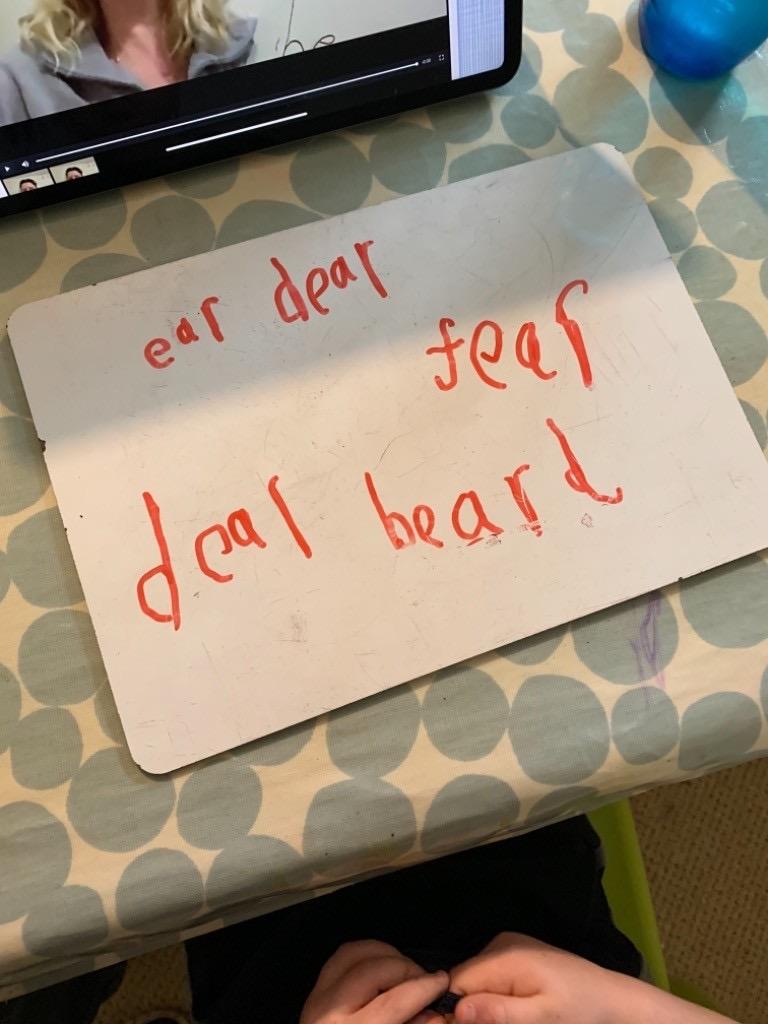 ear dear
fear
dear beard